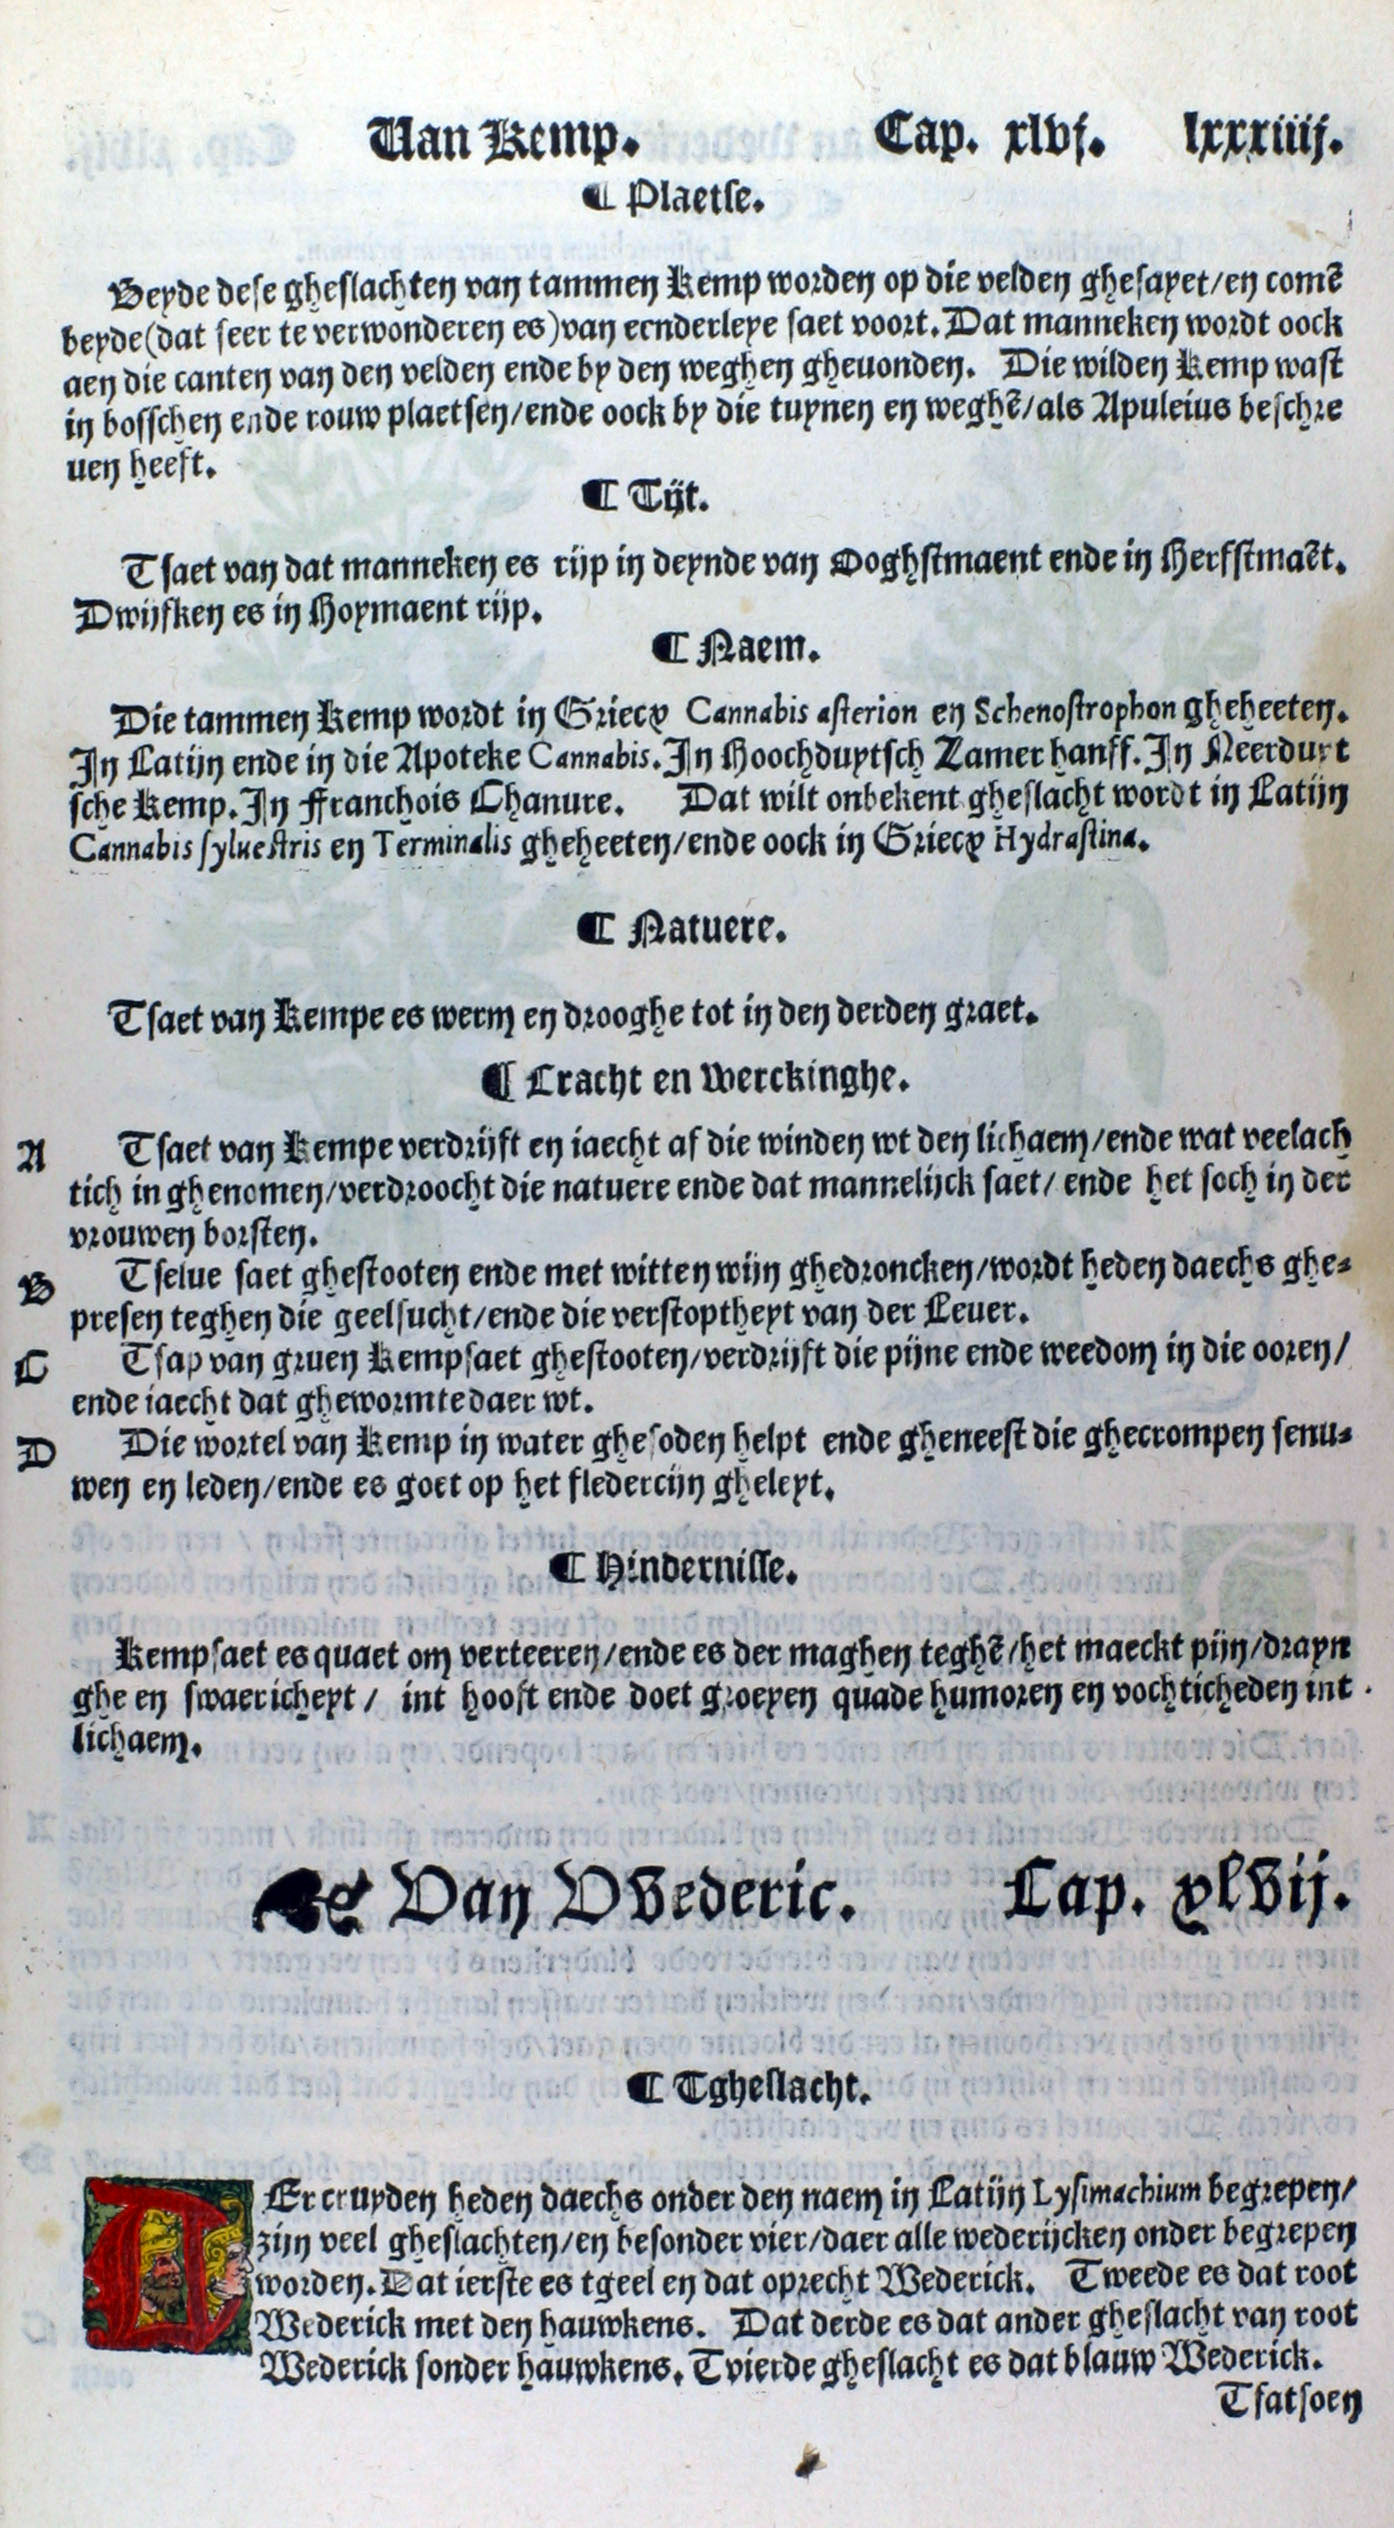 Van Kemp. Cap. xlvj. lxxxiiij.
¶ Plaetse.
Beyde dese gheslachten van tammen Kemp worden op die velden ghesayet/en comē
beyde (dat seer te verwonderen es) van eenderleye saet voort. Dat manneken wordt oock
aen die canten van den velden ende by den weghen gheuonden. Die wilden Kemp wast
in bosschen ende rouw plaetsen/ende oock by die tuynen en weghē/als Apuleius beschre
uen heeft.
¶ Tijt.
Tsaet van dat manneken es rijp in deynde van Ooghstmaent ende in Herfstmaēt.
Dwijfken es in Hoymaent rijp.
¶ Naem.
Die tammen Kemp wordt in Griecx Cannabis asterion en Schenostrophon gheheeten.
In Latijn ende in die Apoteke Cannabis. In Hoochduytsch Zamer hanff. In Neerduyt
sche Kemp. In Franchois Chanure. Dat wilt onbekent gheslacht wordt in Latijn
Cannabis syluestris en Terminalis gheheeten/ende oock in Griecx Hydrastina.
¶ Natuere.
Tsaet van Kempe es werm en drooghe tot in den derden graet.
¶ Cracht en Werckinghe.
A Tsaet van Kempe verdrijft en iaecht af die winden wt den lichaem/ende wat veelach
tich in ghenomen/verdroocht die natuere ende dat mannelijck saet/ ende het soch in der
vrouwen borsten.
B Tselue saet ghestooten ende met witten wijn ghedroncken/wordt heden daechs ghe-
presen teghen die geelsucht/ende die verstoptheyt van der Leuer.
C Tsap van gruen Kempsaet ghestooten/verdrijft die pijne ende weedom in die ooren/
ende iaecht dat ghewormte daer wt.
D Die wortel van Kemp in water ghesoden helpt ende gheneest die ghecrompen senu-
wen en leden/ende es goet op het fledercijn gheleyt.
¶ Hindernisse.
Kempsaet es quaet om verteeren/ende es der maghen teghē/het maeckt pijn/drayn
ghe en swaericheyt / int hooft ende doet groeyen quade humoren en vochticheden int
lichaem.
Van VVederic. Cap. xlvij.
¶ Tgheslacht.
DEr cruyden heden daechs onder den naem in Latijn Lysimachium begrepen/
zijn veel gheslachten/en besonder vier/daer alle wederijcken onder begrepen
worden. Dat ierste es tgeel en dat oprecht Wederick. Tweede es dat root
Wederick met den hauwkens. Dat derde es dat ander gheslacht van root
Wederick sonder hauwkens. Tvierde gheslacht es dat blauw Wederick.
Tfatsoen